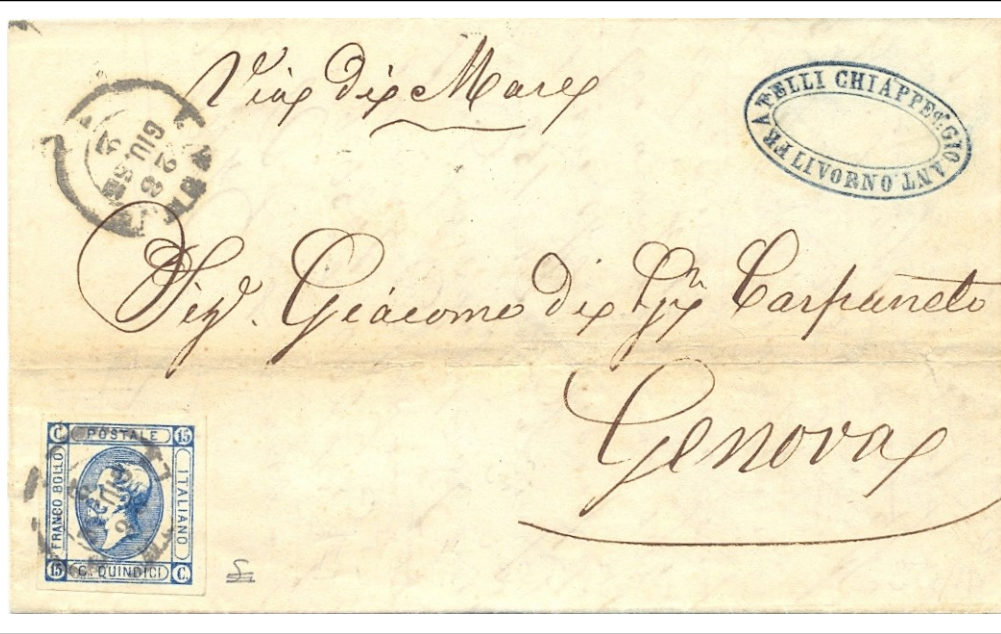 Via di Mare
FRATELLI CHIAPPE qm. GIO ANT.
LIVORNO
GIU.
28
Sigr. Giacomo di Gio Carpaneto
Genova
C. POSTALE 15
FRANCO BOLLO
ITALIANO
15 C. QUINDICI C.